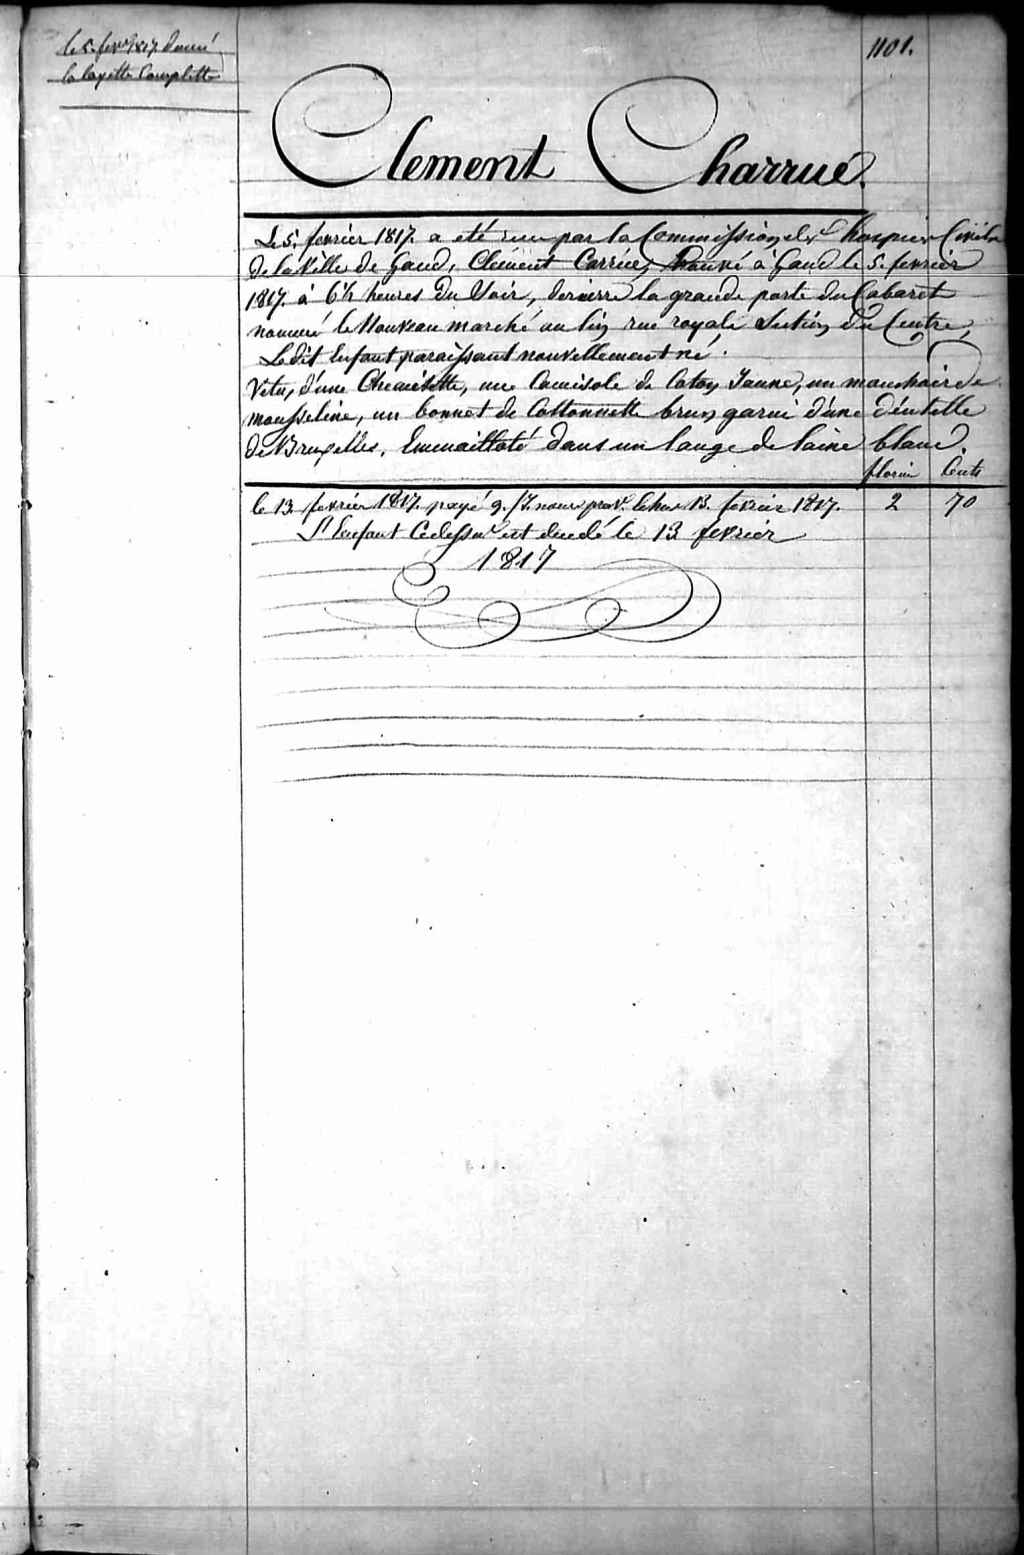 le 5. fevr 1817 donné
la layette Complette
1101.
Clement Charrué.
Le 5. fevrier 1817. a eté recu par la Commission des hospices Civils
de la Ville de Gand, Clement Carrüe, trouvé à Gand le 5. fevrier
1817. à 6½ heures du Soir, derierre la grande porte du Cabaret
nommé le Nouveau marché au lin rue royale Section du Centre,
Ledit Enfant paraissant nouvellement né.
Vetu, d'une Chemisette, une Camisole de Coton Jaune, un mouchoir de
mousseline, un bonnet de Cottonnette brun garni d'une déntelle
de Bruxelles, Emmailloté dans un lange de laine blanc
florin Cents
le 13. fevrier 1817. payé 9. 13. fevrier 1817. 2 70
Enfant Cidessus est decedé le 13 fevrier
1817